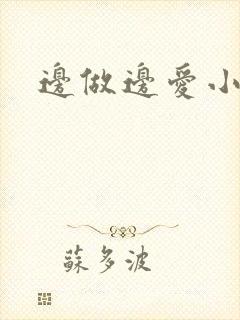 邊做邊愛小
蘇多波